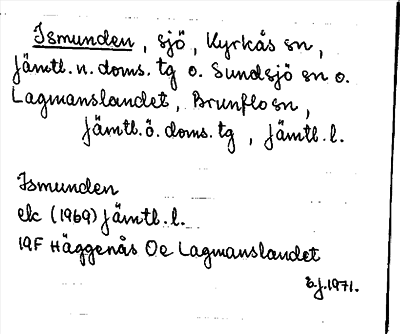 Ismunden, sjö, Kyrkås sn,
Jämtl. n. doms. tg o. Sundsjö sn o.
Lagmanslandet, Brunflo sn,
Jämtl. ö. doms. tg, Jämtl. l.
Ismunden
ek (1969) Jämtl. l.
19F Häggenås Oc Lagmanslandet
1971.